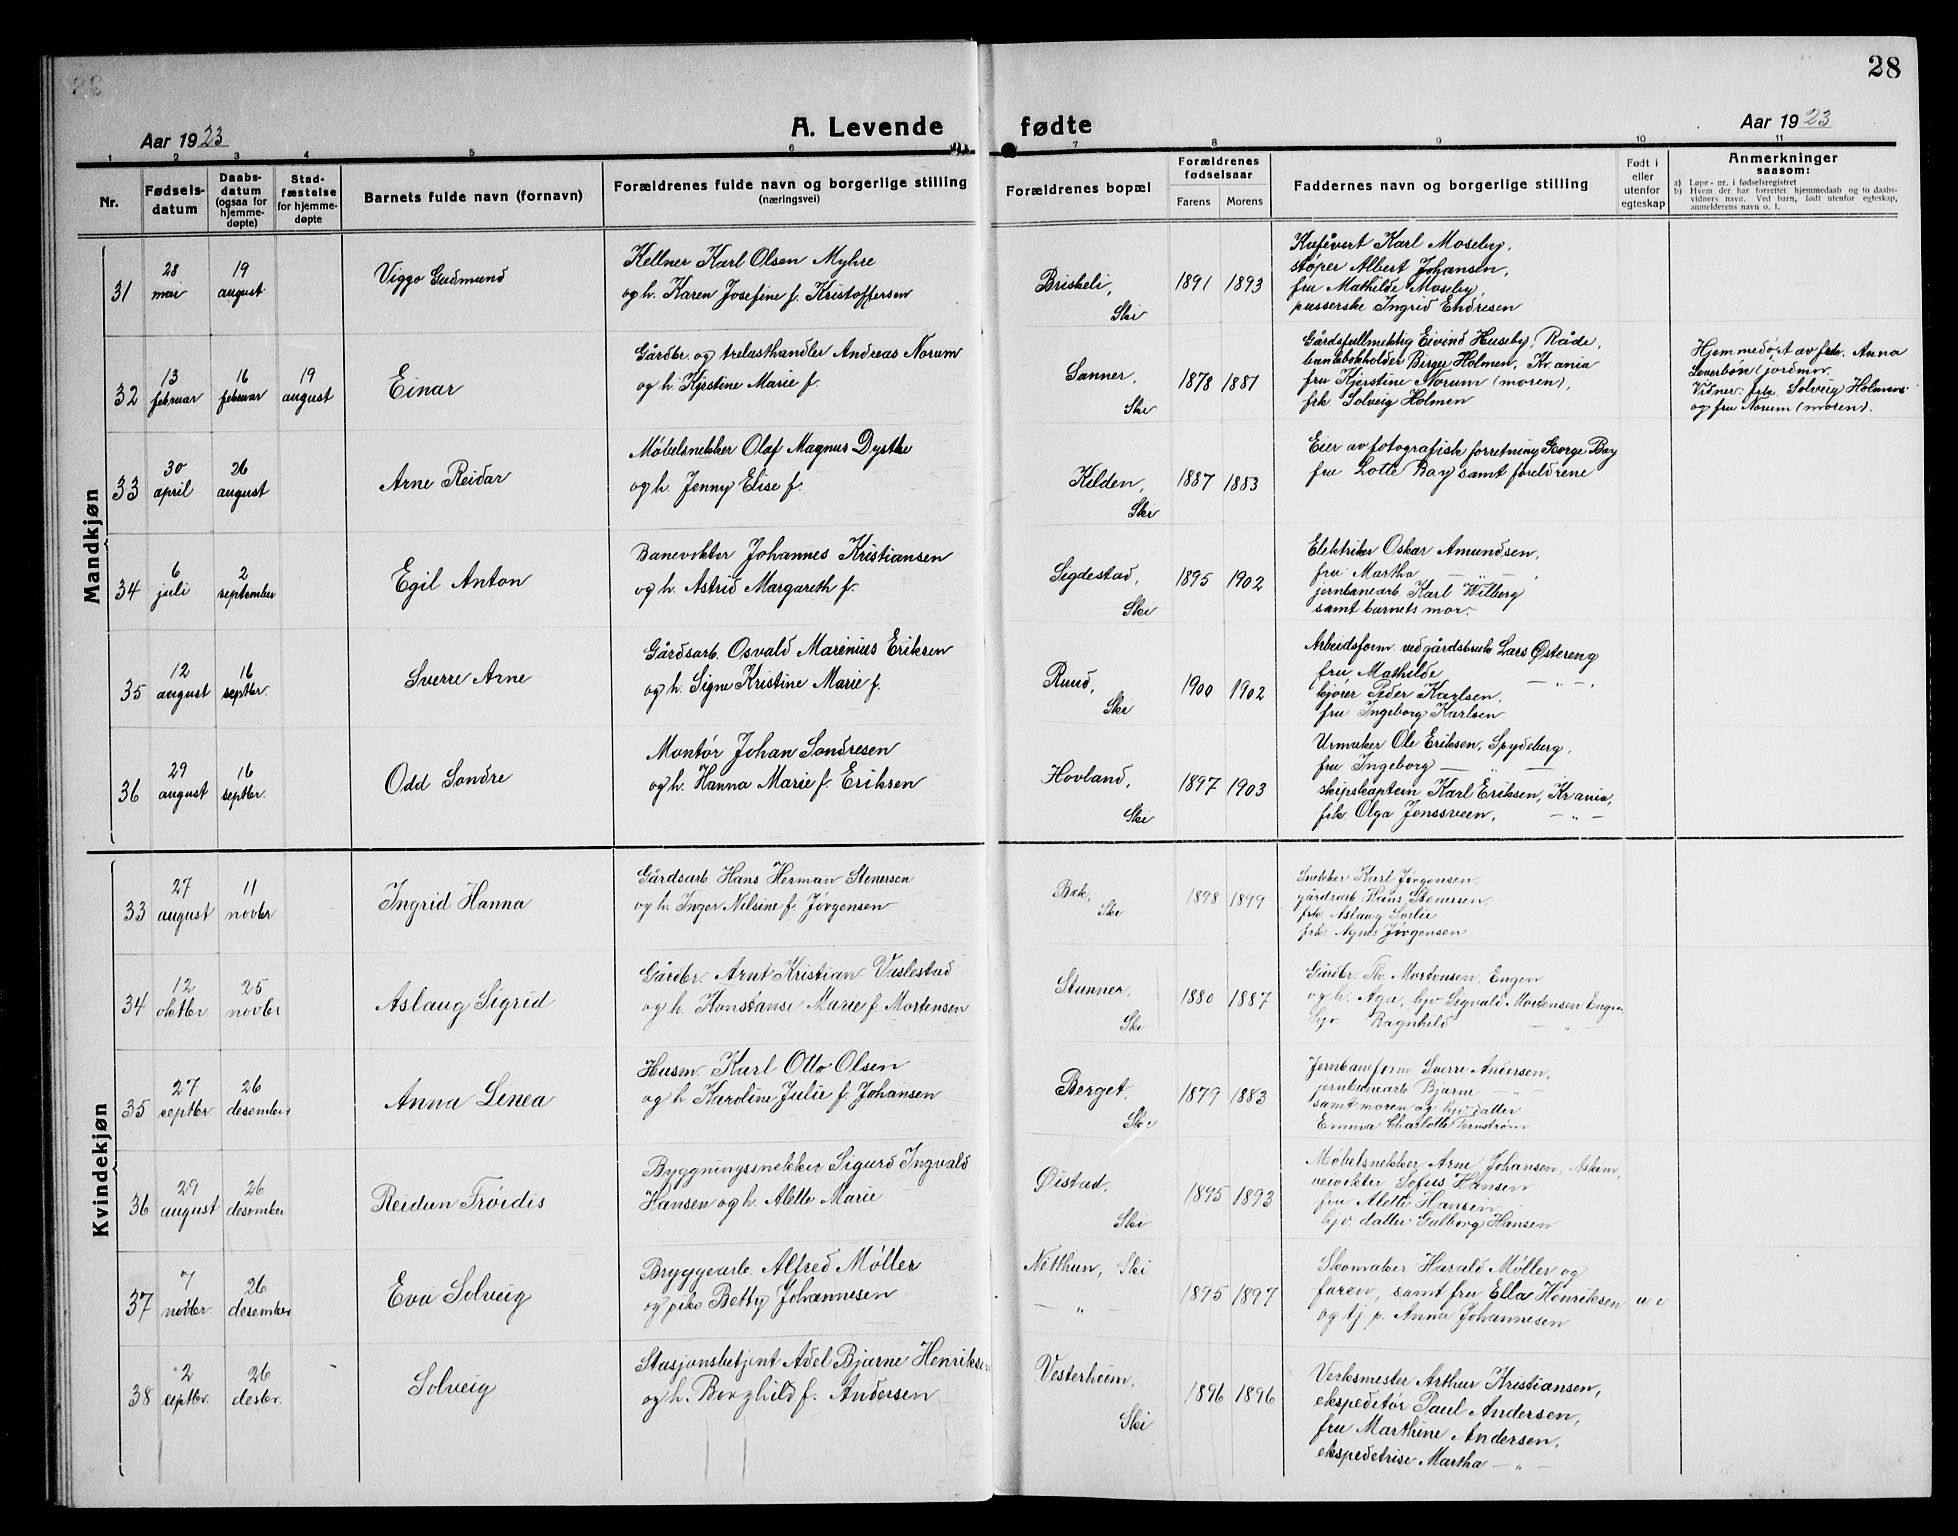 28
Aar 1923
A. Levende fødte
Aar 1923
1 2 3 4 5 6 7 8 9 10 11
Nr.
Fødsels-datum
Daabs-datum (ogsaa for hjemme-døpte)
Stad-fæstelse for hjemme-døpte
Barnets fulde navn (fornavn)
Forældrenes fulde navn og borgerlige stilling (næringsvei)
Forældrenes bopæl
Forældrenes fødselsaar
Farens Morens
Faddernes navn og borgerlige stilling
Født i eller utenfor egteskap
Anmerkninger saasom:
a) Løpe-nr. i fødselsregistret
b) Hvem der har forrettet hjemmedaab og to daabs-
vidners navn. Ved barn, født utenfor egteskap,
anmelderens navn o. l.
Mandkjøn
31
28 mai
19 august
Viggo Gudmund
Kellner Karl Olsen Myhre
og h. Karen Josefine f. Kristoffersen
Briskeli,
Ski
1891 1893
Kafévert Karl Moseby,
støper Albert Johansen,
fru Mathilde Moseby,
passerske Ingrid Endresen
32
13 februar
16 februar
19 august
Einar
Gårdbr. og trelasthandler Andreas Norum
og h. Kjerstine Marie f.
Sanner,
Ski
1878 1881
Gårdsfullmektig Eivind Huseby, Råde,
bankbokholder Birger Holmen, Kr.ania
fru Kjerstine Norum (moren),
frk Solveig Holmen
Hjemmedøpt av frk. Anna
(jordmor.
Vidner: frk. Solveig Holmen
og fru Norum (moren).
33
30 april
26 august
Arne Reidar
Møbelsnekker Olaf Magnus Dystke
og h. Jenny Elise f.
Kilden,
Ski
1887 1883
Eier av fotografisk forretning George Bay
fru Lotte Bay samt foreldrene
34
6 juli
2 september
Egil Anton
Banevokter Johannes Kristiansen
og h. Astrid Margareth f.
Sigdestad,
Ski
1895 1902
Elektriker Oskar Amundsen,
fru Martha — " —,
jernbanearb Karl Wilberg
samt barnets mor.
35
12 august
16 septbr.
Sverre Arne
Gårdsarb. Osvald Marenius Eriksen
og h. Signe Kristine Marie f.
Ruud,
Ski
1900 1902
Arbeidsform. ved gårdsbruk Lars Østereng
fru Mathilde — " —,
kjører Peder Karlsen,
fru Ingeborg Karlsen
36
29 august
16 septbr.
Odd Sondre
Montør Johan Sondresen
og h. Hanna Marie f. Eriksen
Hovland,
Ski
1897 1903
Urmaker Ole Eriksen, Spydeberg,
fru Ingeborg — " —
skipskaptein Karl Eriksen, Kr.ania,
frk. Olga Jenssveen, — " —
Kvindekjøn
33
27 august
11 novbr
Ingrid Hanna
Gårdsarb Hans Herman Stenersen
og h. Inger Nilsine f. Jørgensen
Bøk,
Ski
1898 1899
Snekker Karl Jørgensen,
gårdsarb Hans Stenersen,
frk Aslaug Sørlie
frk. Agnes Jørgensen
34
12 oktbr.
25 novbr
Aslaug Sigrid
Gårdbr. Arnt Kristian Vaslestad
og h. Konstanse Marie f. Mortensen
Stunner,
Ski
1880 1887
Gårdbr. Th. Mortensen, Engen
og h. Aga, hjv Sigvald Mortensen Engen
hjv Ragnhild — " —
35
27 septbr
26 desember
Anna Linea
Husm. Karl Otto Olsen
og h Karoline Julie f Johansen
Berget,
Ski
1879 1883
Jernbaneform. Sverre Andersen,
jernbanearb Bjarne — " —
samt moren og hjv datter
Emma Charlotte Ternstrøm
36
29 august
26 desember
Reidun Frøidis
Bygningssnekker Sigurd Ingvald
Hansen og h. Alette Marie
Øistad,
Ski
1895 1893
Møbelsnekker Arne Johansen, Askim,
veivokter Sofus Hansen
fru Alette Hansen
hjv. datter Gulborg Hansen
37
7 novbr.
26 desember
Eva Solveig
Bryggearb. Alfred Møller
og pike Betty Johannesen
Nitthun, Ski
— " —
1895 1897
Skomaker Harald Møller og
faren, samt fru Ella Henriksen
og tj p. Anna Johannesen
u e
38
2 septbr.
26 desbr.
Solveig
Stasjonsbetjent Adel Bjarne Henriksen
og h. Borghild f. Andersen
Vesterheim,
Ski
1896 1896
Verksmester Arthur Kristiansen,
ekspeditør Paul Andersen,
fru Marthine Andersen,
ekspeditrise Martha — " —